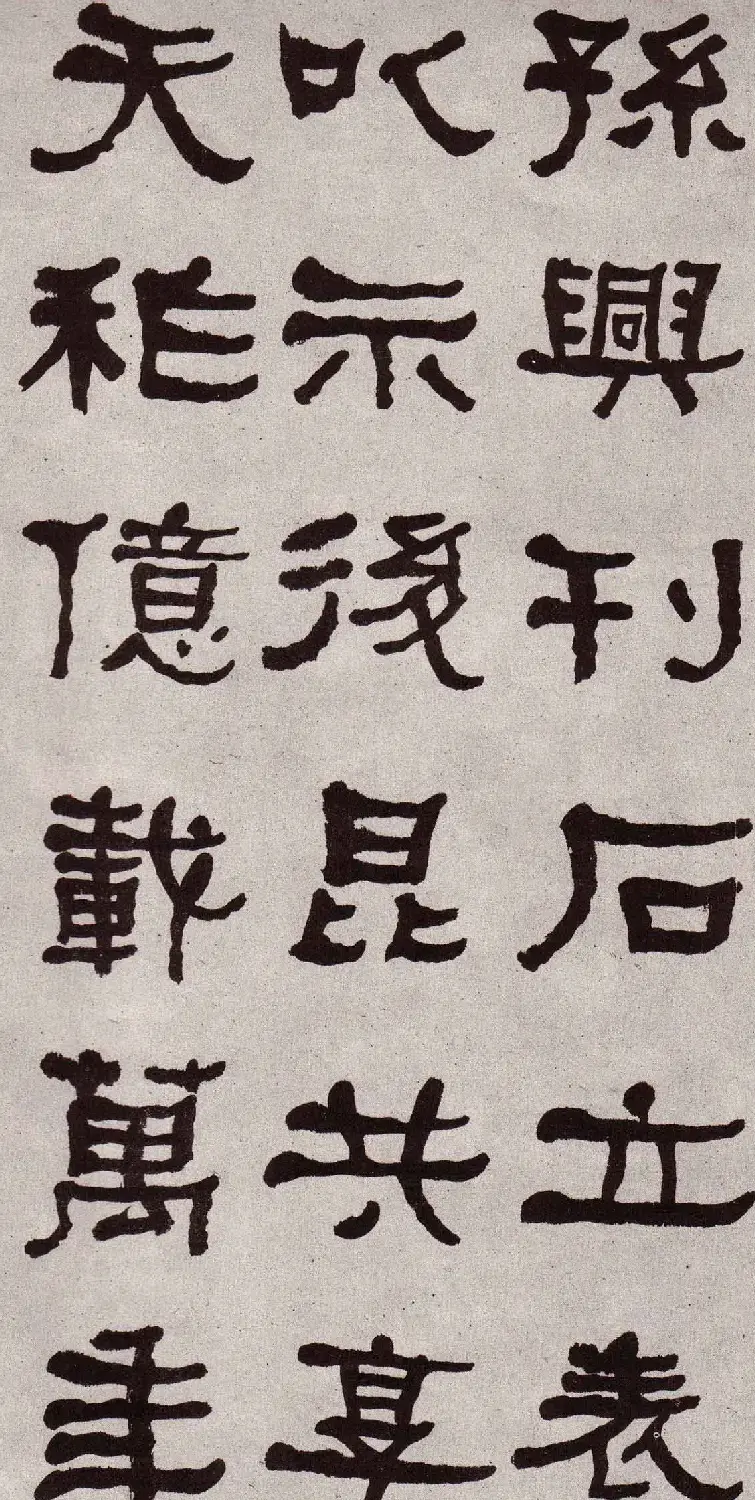 孫興刊石立表
㕥示後昆共享
天祚億載萬年